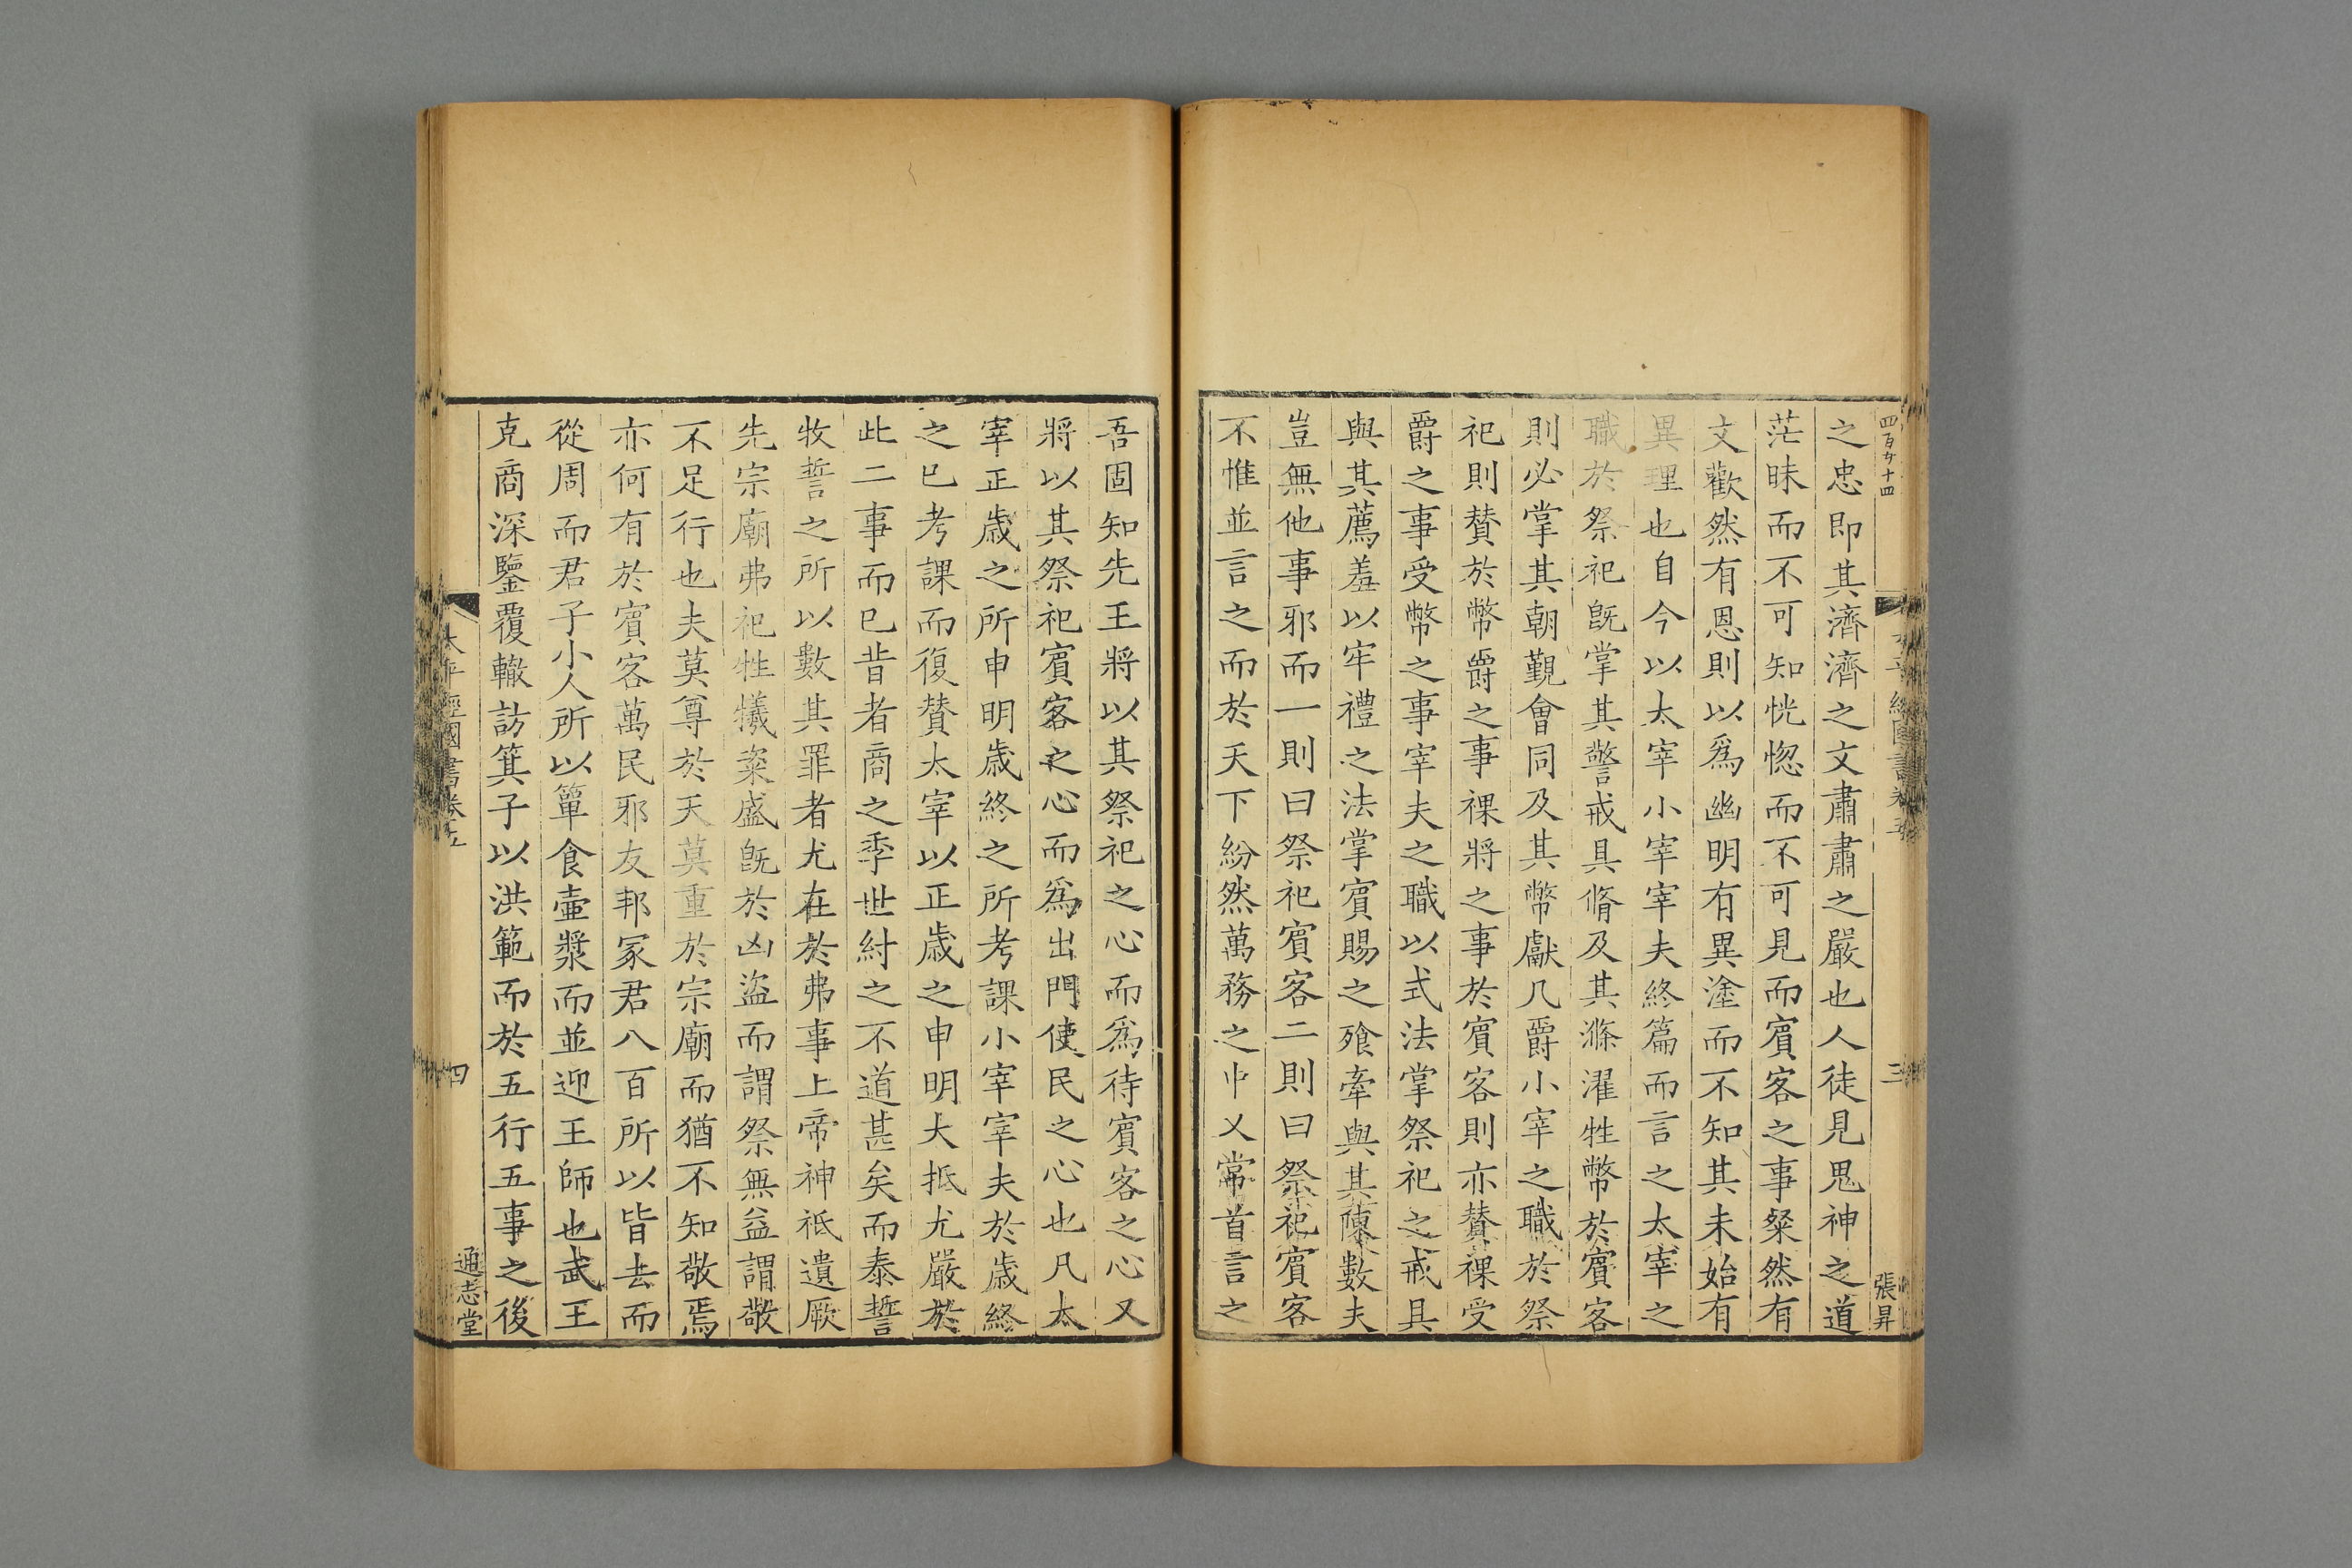 四百廿十四
太平經國書卷五
三
張昇
之忠即其濟濟之文肅肅之嚴也人徒見鬼神之道
茫昧而不可知恍惚而不可見而賓客之事粲然有
文歡然有恩則以爲幽明有異塗而不知其未始有
異理也自今以太宰小宰宰夫終篇而言之太宰之
職於祭祀旣掌其警戒具脩及其滌濯牲幣於賓客
則必掌其朝覲會同及其幣獻几爵小宰之職於祭
祀則贊於幣爵之事祼將之事於賓客則亦贊祼受
爵之事受幣之事宰夫之職以式法掌祭祀之戒具
與其薦羞以牢禮之法掌賓賜之飱牽與其陳數夫
豈無他事邪而一則曰祭祀賓客二則曰祭祀賓客
不惟並言之而於天下紛然萬務之中乂常首言之
吾固知先王將以其祭祀之心而爲待賓客之心又
將以其祭祀賓客之心而爲出門使民之心也凡太
宰正歳之所申明歳終之所考課小宰宰夫於歳終
之巳考課而復贊太宰以正歳之申明大抵尤嚴於
此二事而巳昔者商之季世紂之不道甚矣而泰誓
牧誓之所以數其罪者尤在於弗事上帝神祗遺厥
先宗廟弗祀牲犧粢盛旣於凶盜而謂祭無益謂敬
不足行也夫莫尊於天莫重於宗廟而猶不知敬焉
亦何有於賓客萬民邪友邦冢君八百所以皆去而
從周而君子小人所以簞食壷漿而並迎王師也武王
克商深鑒覆轍訪箕子以洪範而於五行五事之後
太平經國書卷五
四
通志堂